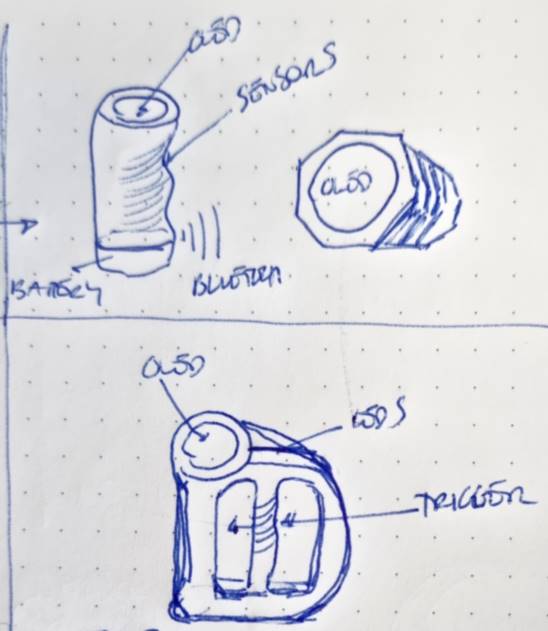 OLED
SENSORS
OLED
BATTERY
BLUETOOTH
OLED
LEDS
TRIGGER